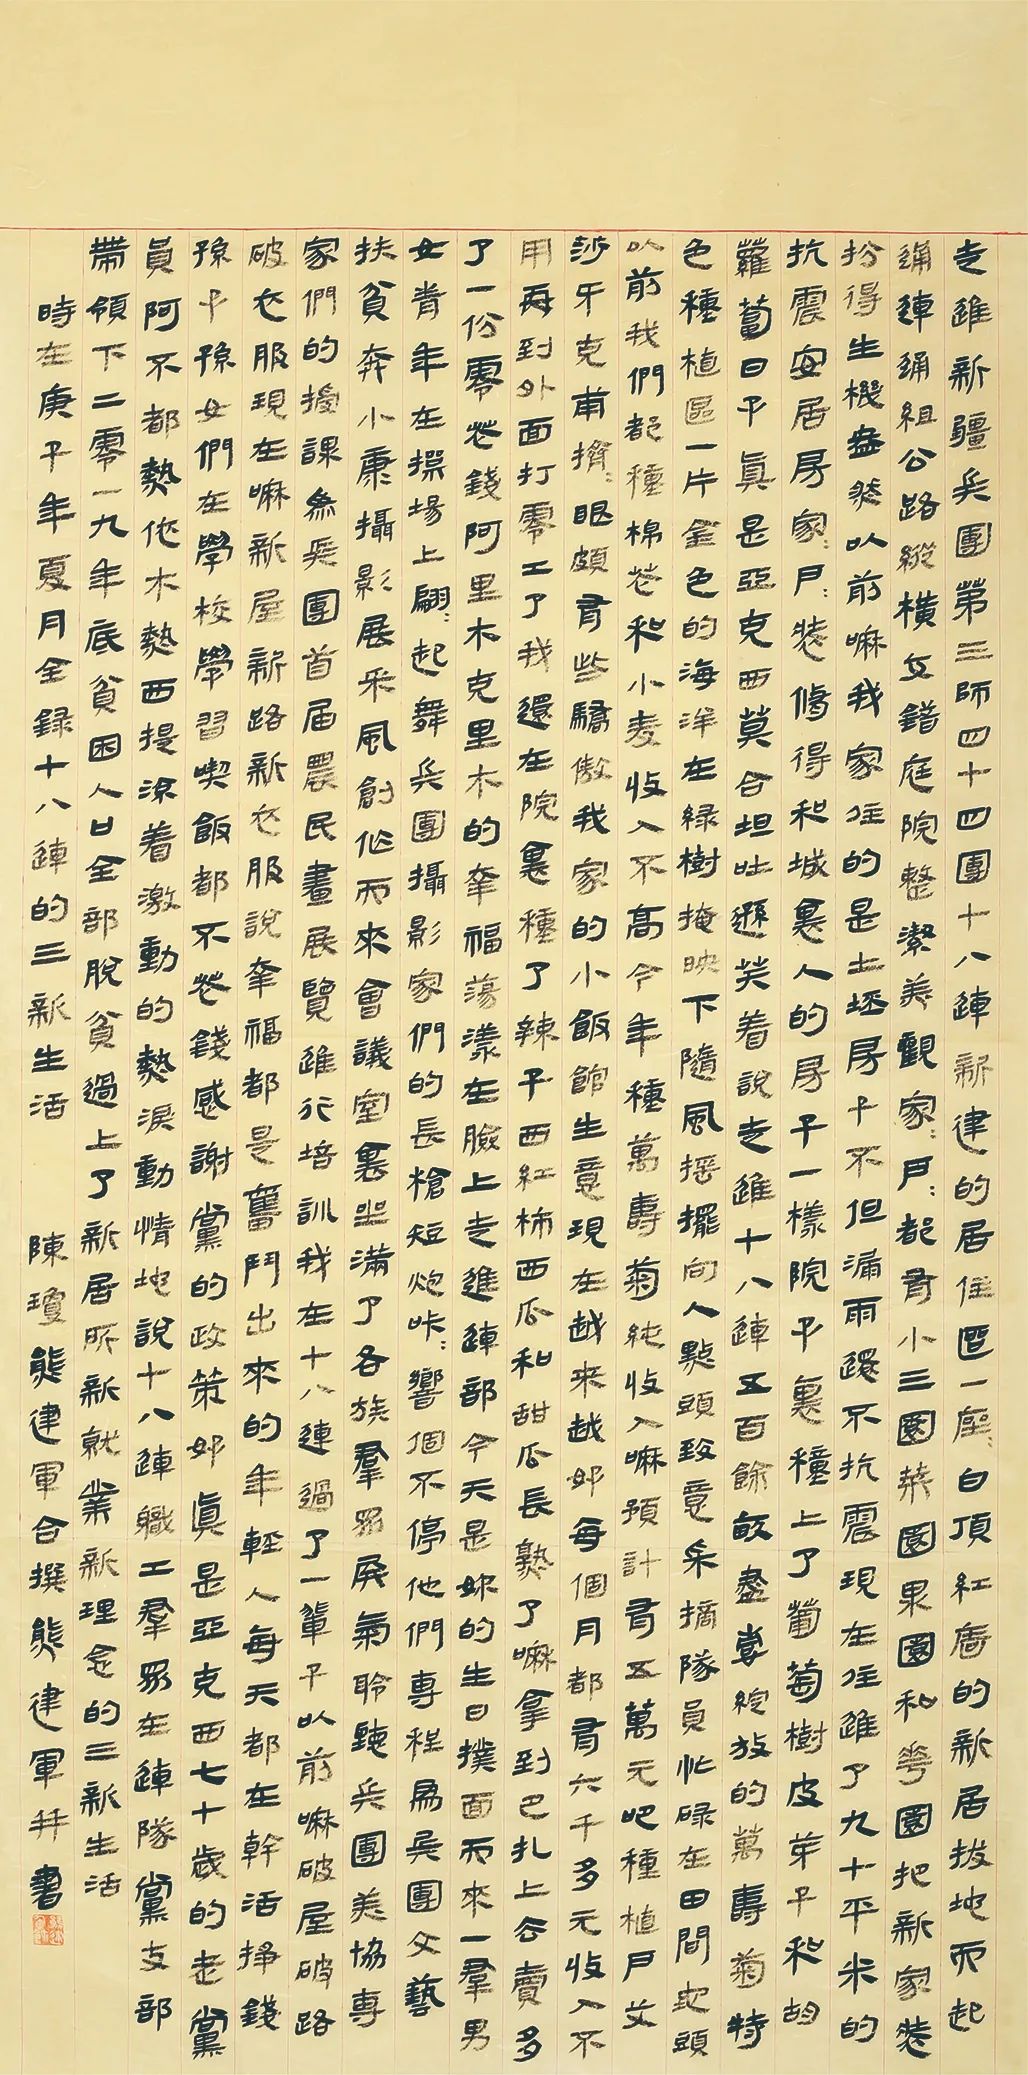 走進新疆兵團第三師四十四團十八連新建的居住區一座：白頂紅牆的新居拔地而起
通連通組公路縱橫交錯庭院整潔美觀家：戶：都有小三園菜園果園和花園把新家裝
扮得生機盎然以前嘛我家住的是土坯房子不但漏雨還不抗震現在住進了九十平米的
抗震安居房家：戶：裝修得和城裏人的房子一樣院子裏種上了葡萄樹皮芽子和胡
蘿蔔日子真是亞克西莫合坦吐遜笑着說走進十八連五百餘畝盡情綻放的萬壽菊特
色種植區一片金色的海洋在綠樹掩映下隨風搖擺向人點頭致意采摘隊員忙碌在田間地頭
以前我們都種棉花和小麥收入不高今年種萬壽菊純收入嘛預計有五萬元吧種植戶艾
沙牙克甫擠：眼頗有些驕傲我家的小飯館生意現在越來越好每個月都有六千多元收入不
用再到外面打零工了我還在院裏種了辣子西紅柿西瓜和甜瓜長熟了嘛拿到巴扎上去賣多
了一份零花錢阿里木克里木的幸福蕩漾在臉上走進連部今天是妳的生日撲面而來一羣男
女青年在操場上翩：起舞兵團攝影家們的長槍短炮咔：響個不停他們專程為兵團文藝
扶貧奔小康攝影展采風創作而來會議室裏坐滿了各族羣眾屏氣聆聽兵團美協專
家們的授課為兵團首屆農民畫展覽進行培訓我在十八連過了一輩子以前嘛破屋破路
破衣服現在嘛新屋新路新衣服說幸福都是奮鬥出來的年輕人每天都在幹活掙錢
孫子孫女們在學校學習喫飯都不花錢感謝黨的政策好真是亞克西七十歲的老黨
員阿不都熱依木熱西提流着激動的熱淚動情地說十八連職工羣眾在連隊黨支部
帶領下二零一九年底貧困人口全部脫貧過上了新居所新就業新理念的三新生活
時在庚子年夏月全錄十八連的三新生活 陳瓊熊建軍合撰熊建軍并書